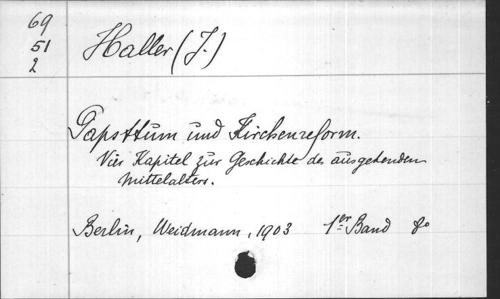 69
51
2
Haller (J.)
Papsttum und Kirchenreform.
Vier Kapitel zur Geschichte des ausgehenden
Mittelalters.
Berlin, Weidmann, 1903 1er Band 8o